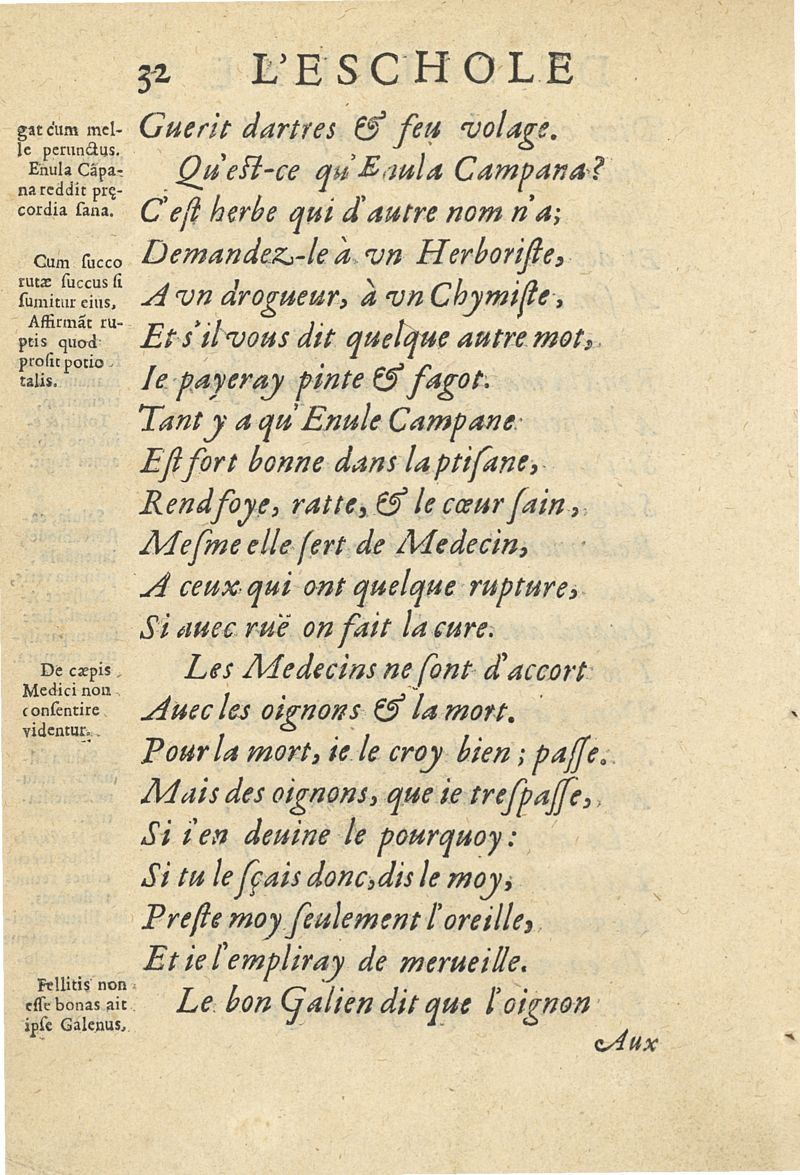 32 L'ESCHOLE
gat cum mel-
le perunctus.
Enula Cāpa-
na reddit prę-
cordia sana.
Cum succo
rutæ succus si
sumitur eius,
Affirmāt ru-
ptis quod
prosit potio
talis.
De cæpis
Medici non
consentire
videntur.
Fellitis non
esse bonas ait
ipse Galenus.
Guerit dartres & feu volage.
Qu'eſt-ce qu'Enula Campana?
C'eſt herbe qui d'autre nom n'a;
Demandez-le à vn Herboriſte,
A vn drogueur, à vn Chymiſte,
Et s'il vous dit quelque autre mot,
Ie payeray pinte & fagot.
Tant y a qu'Enule Campane
Eſt fort bonne dans la ptiſane,
Rend foye, ratte, & le cœur ſain,
Meſme elle ſert de Medecin,
A ceux qui ont quelque rupture,
Si auec ruë on fait la cure.
Les Medecins ne ſont d'accort
Auec les oignons & la mort.
Pour la mort, ie le croy bien; paſſe.
Mais des oignons, que ie treſpaſſe,
Si i'en deuine le pourquoy:
Si tu le ſçais donc, dis le moy,
Preſte moy ſeulement l'oreille,
Et ie l'empliray de merueille.
Le bon Galien dit que l'oignon
Aux